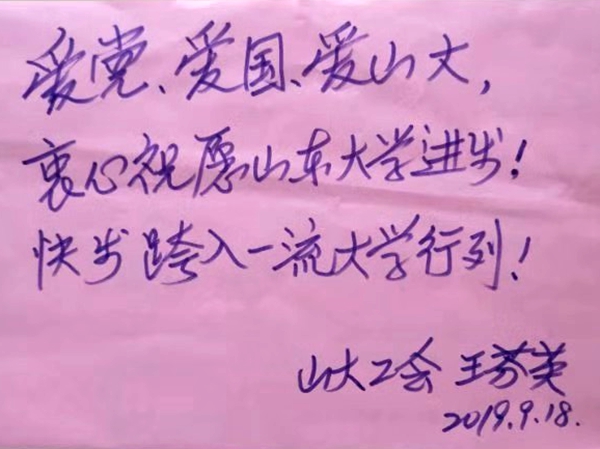 爱党、爱国、爱山大,
衷心祝愿山东大学进步!
快步跨入一流大学行列!
山大工会 王芬英
2019.9.18.